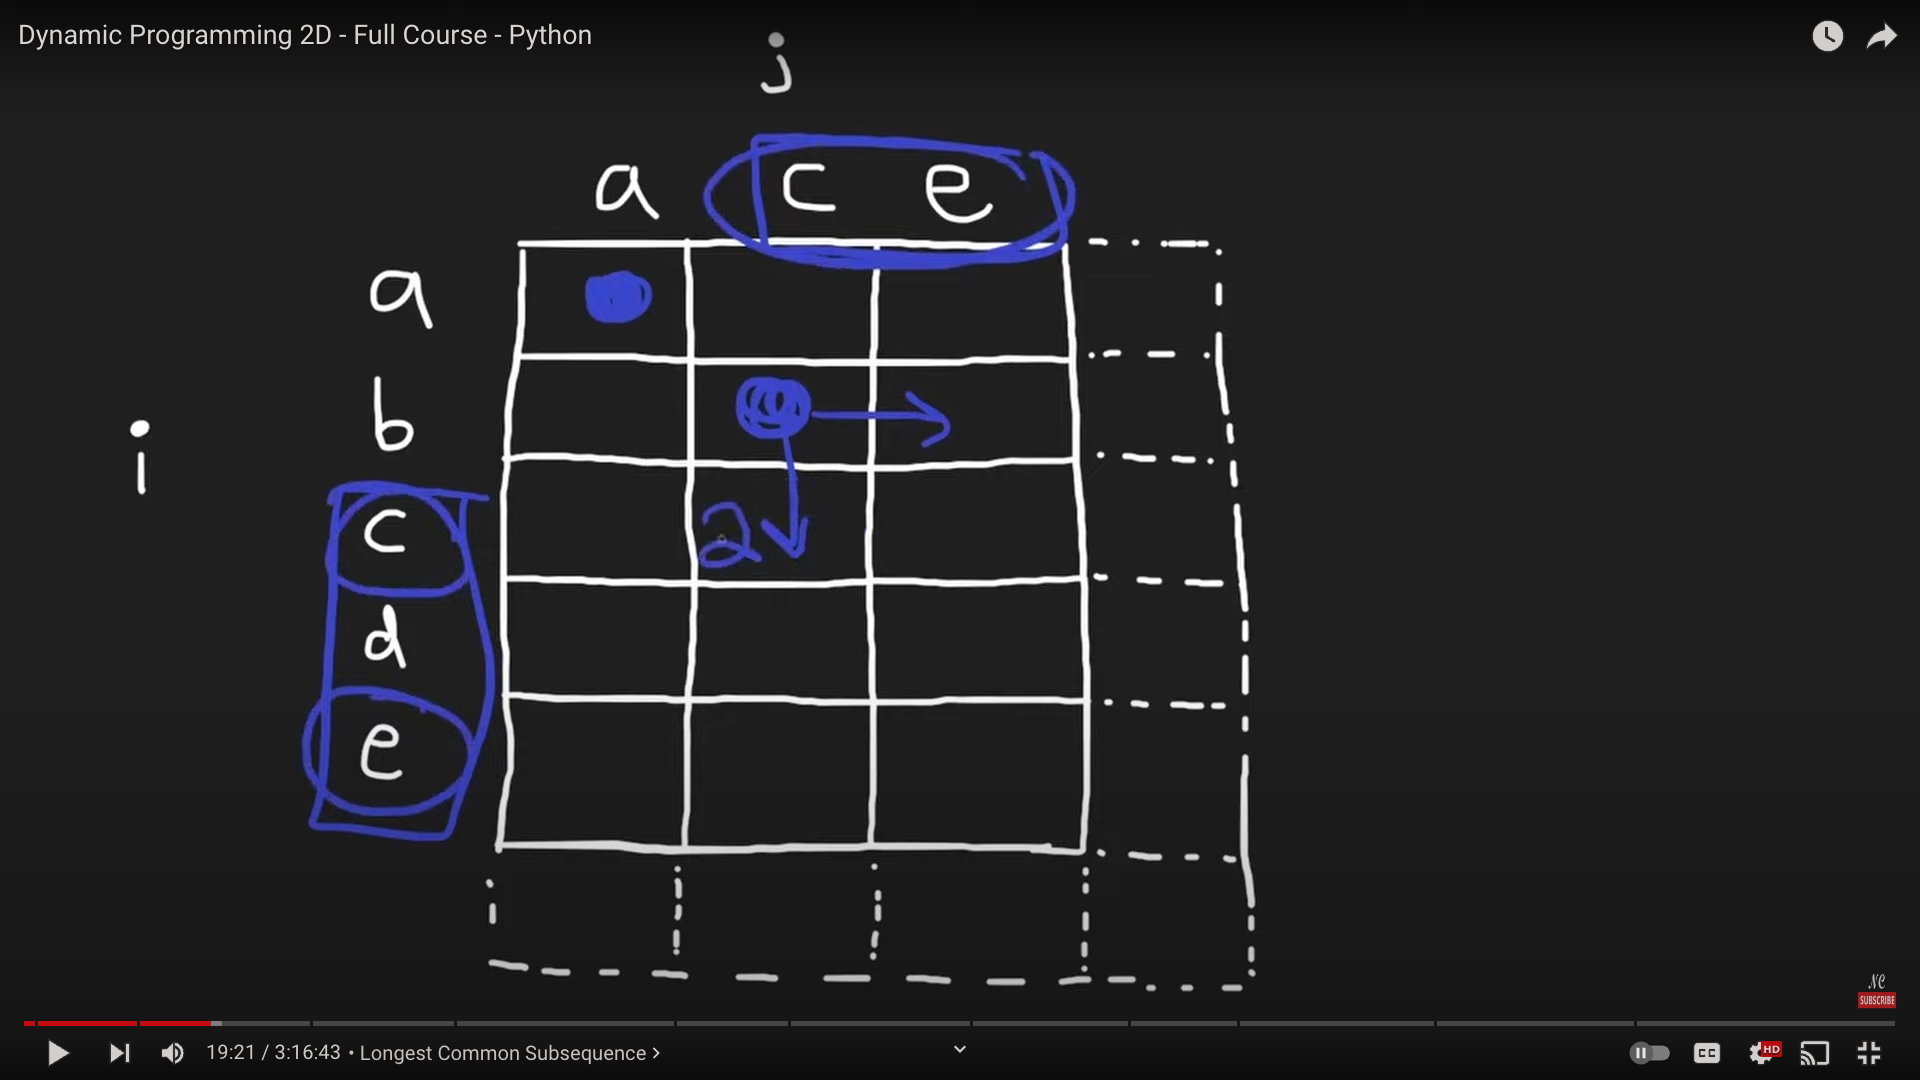 Dynamic Programming 2D - Full Course - Python
j
a c e
a
b
i
c
2
d
e
NC
SUBSCRIBE
19:21 / 3:16:43 • Longest Common Subsequence >
CC
HD